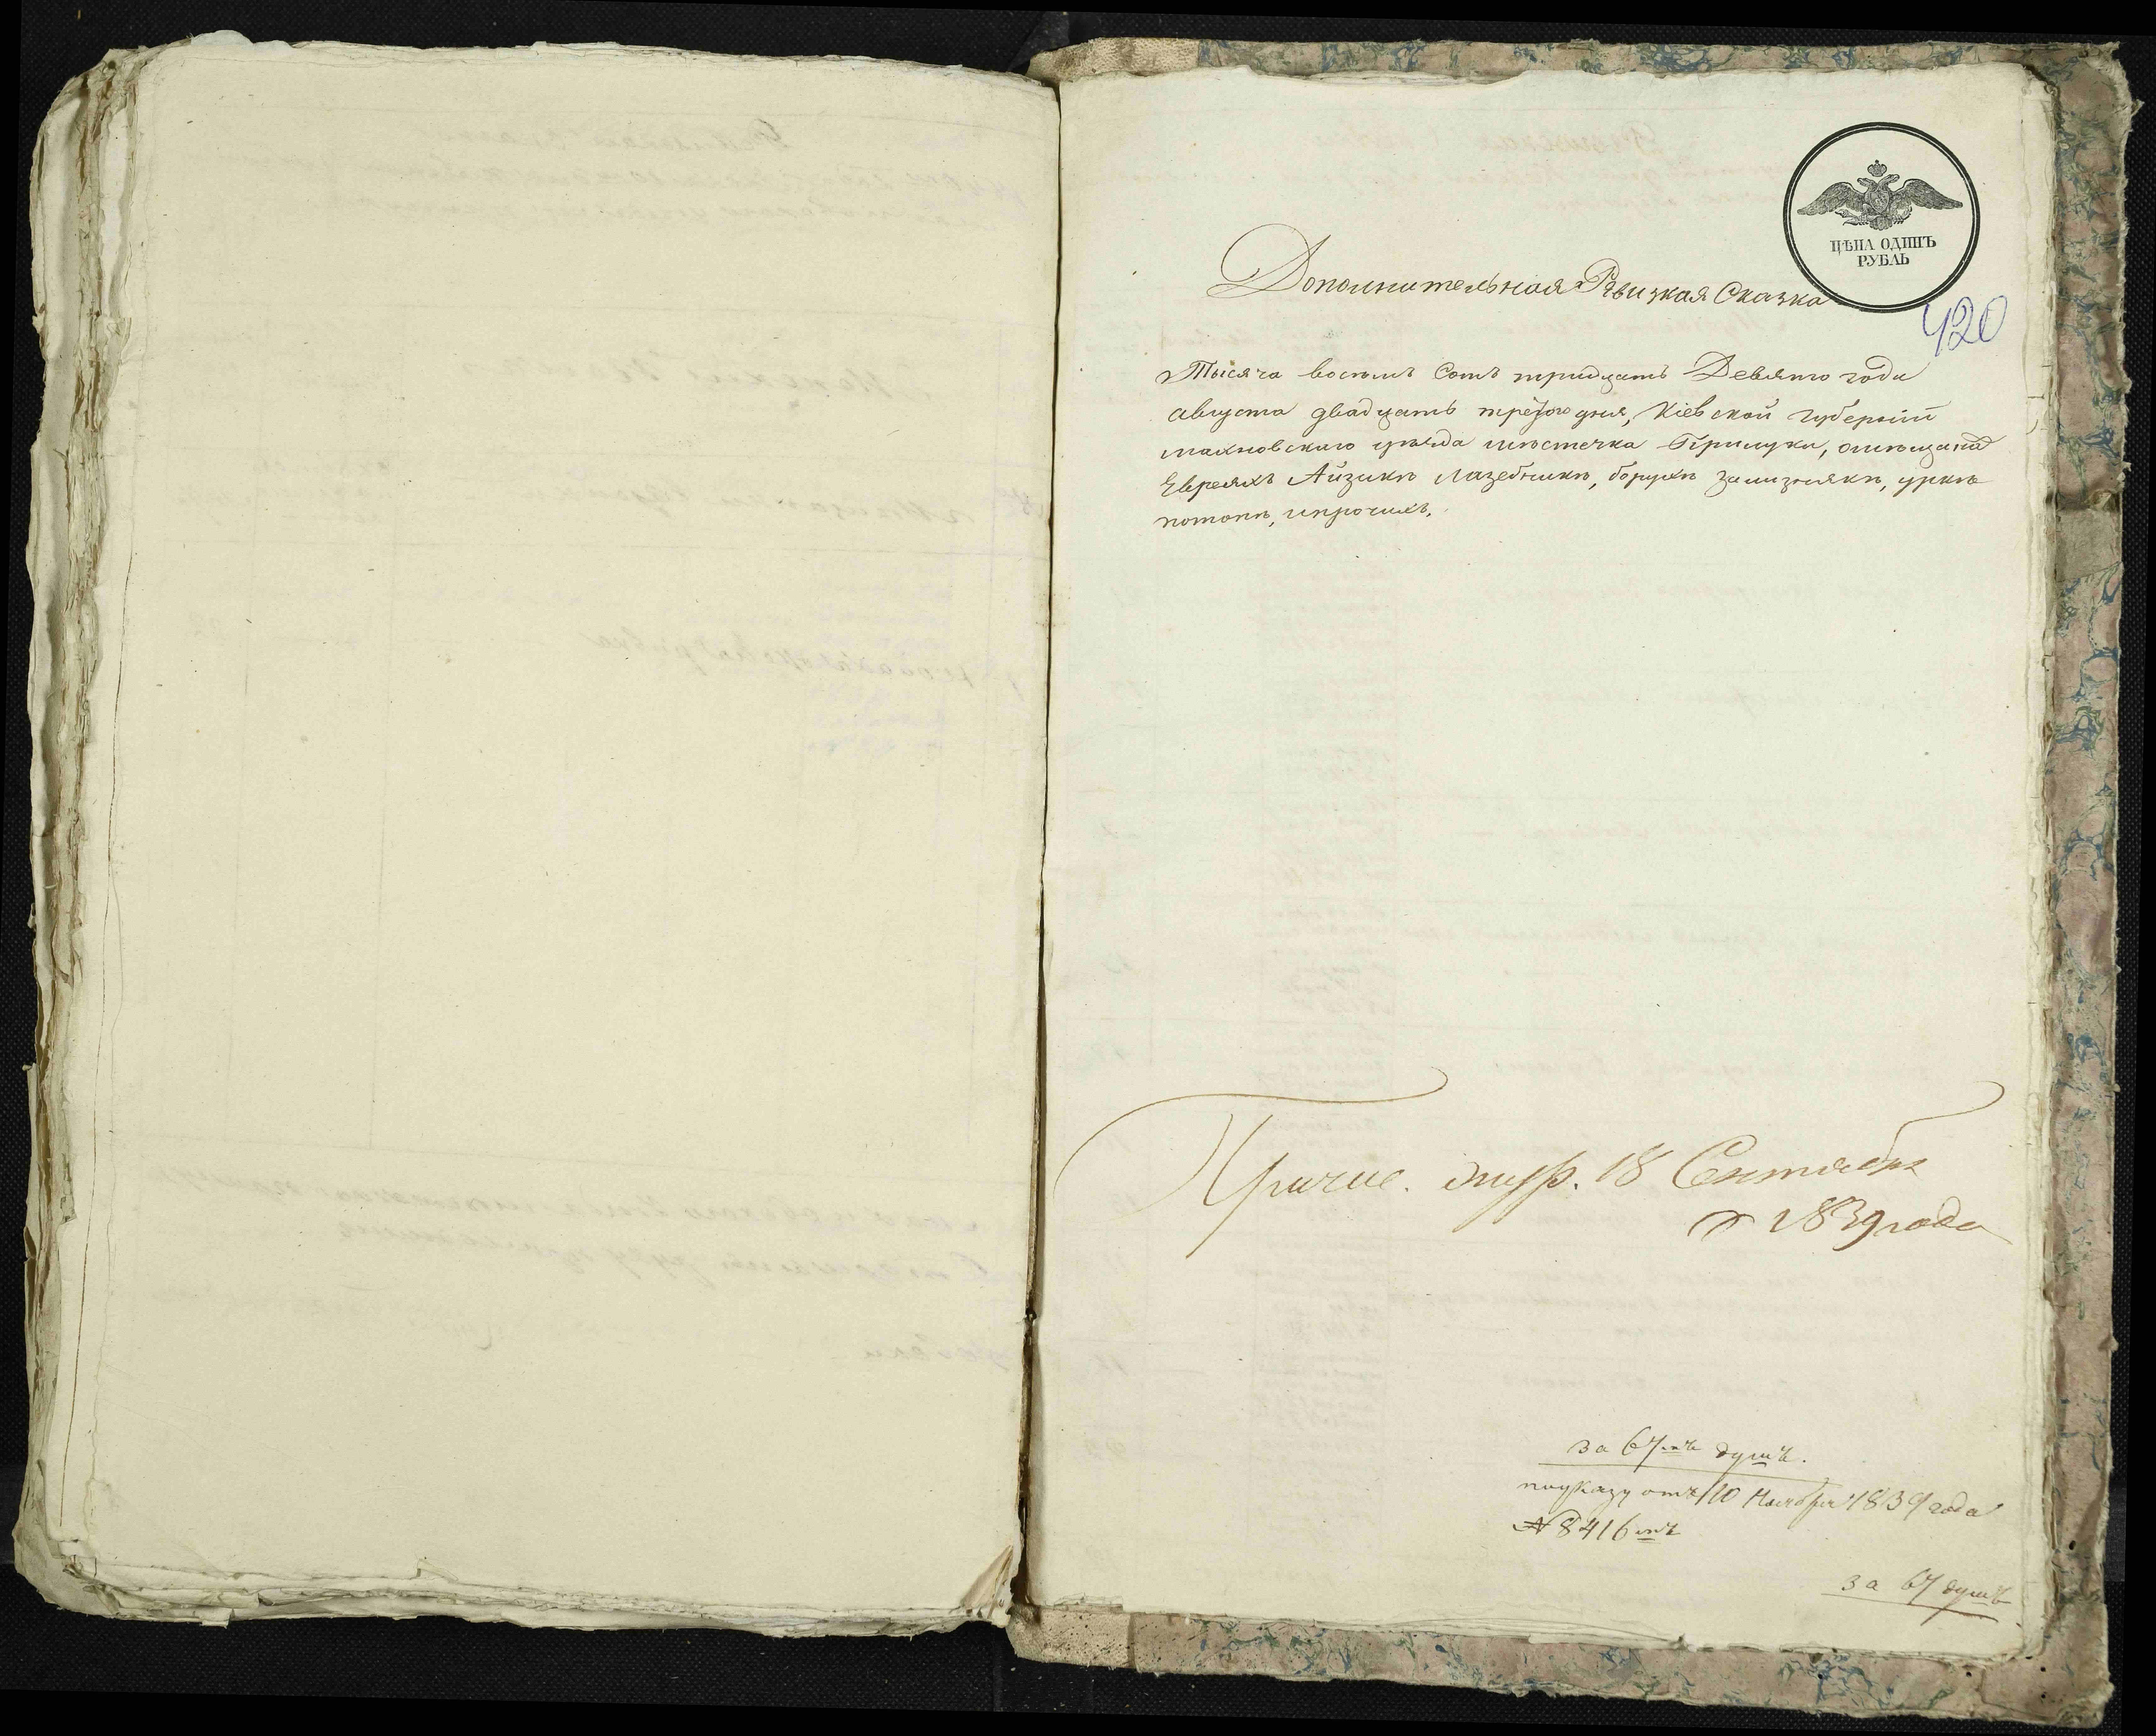 ЦѢНА ОДИНЪ
РУБЛЬ
420
Дополнительная Ревизкая Сказка
Тысяча восемь Сотъ тридцать Девято года
августа двадцать третого дня, Кіевской губерніи
махновскаго уѣзда мѣстечка Прилуки, омѣщанад
Евреяхъ Айзикѣ Лазебникѣ, борухѣ зализнякѣ, уркѣ
потопѣ, ипрочихъ.
18 Сентября
1839 года
за 67мъ душъ.
поуказу отъ 10 Ноября 1839 года
№ 8416мъ
за 67 душъ